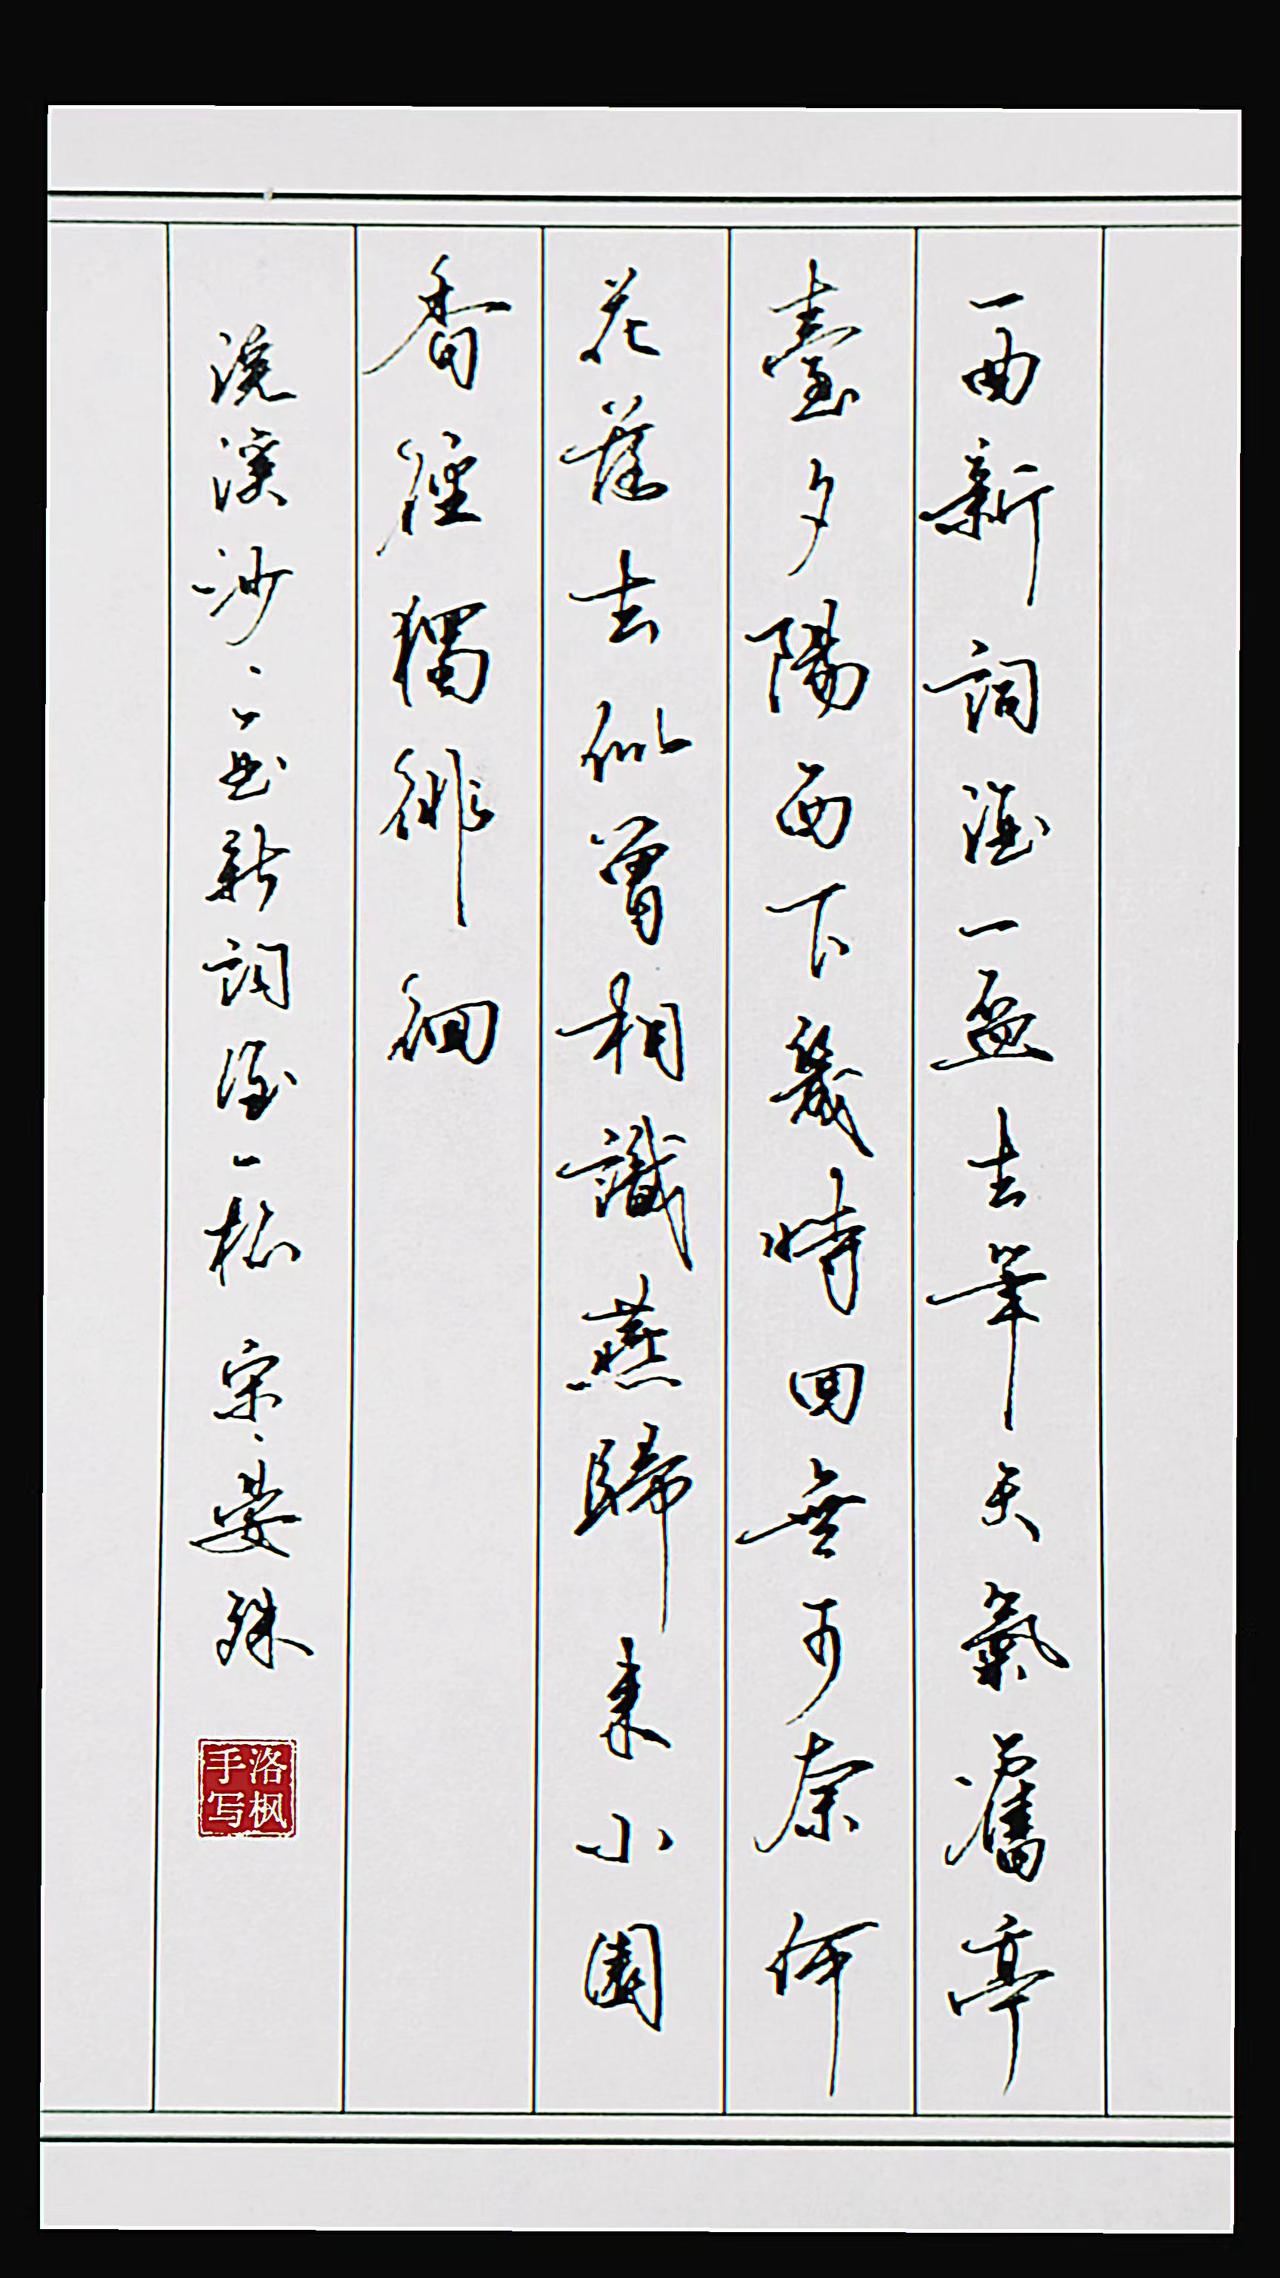 一曲新詞酒一盃去年天氣舊亭
臺夕陽西下幾時回無可奈何
花落去似曾相識燕歸来小園
香徑獨徘徊
浣溪沙、一曲新詞酒一杯 宋、晏殊
洛枫
手写